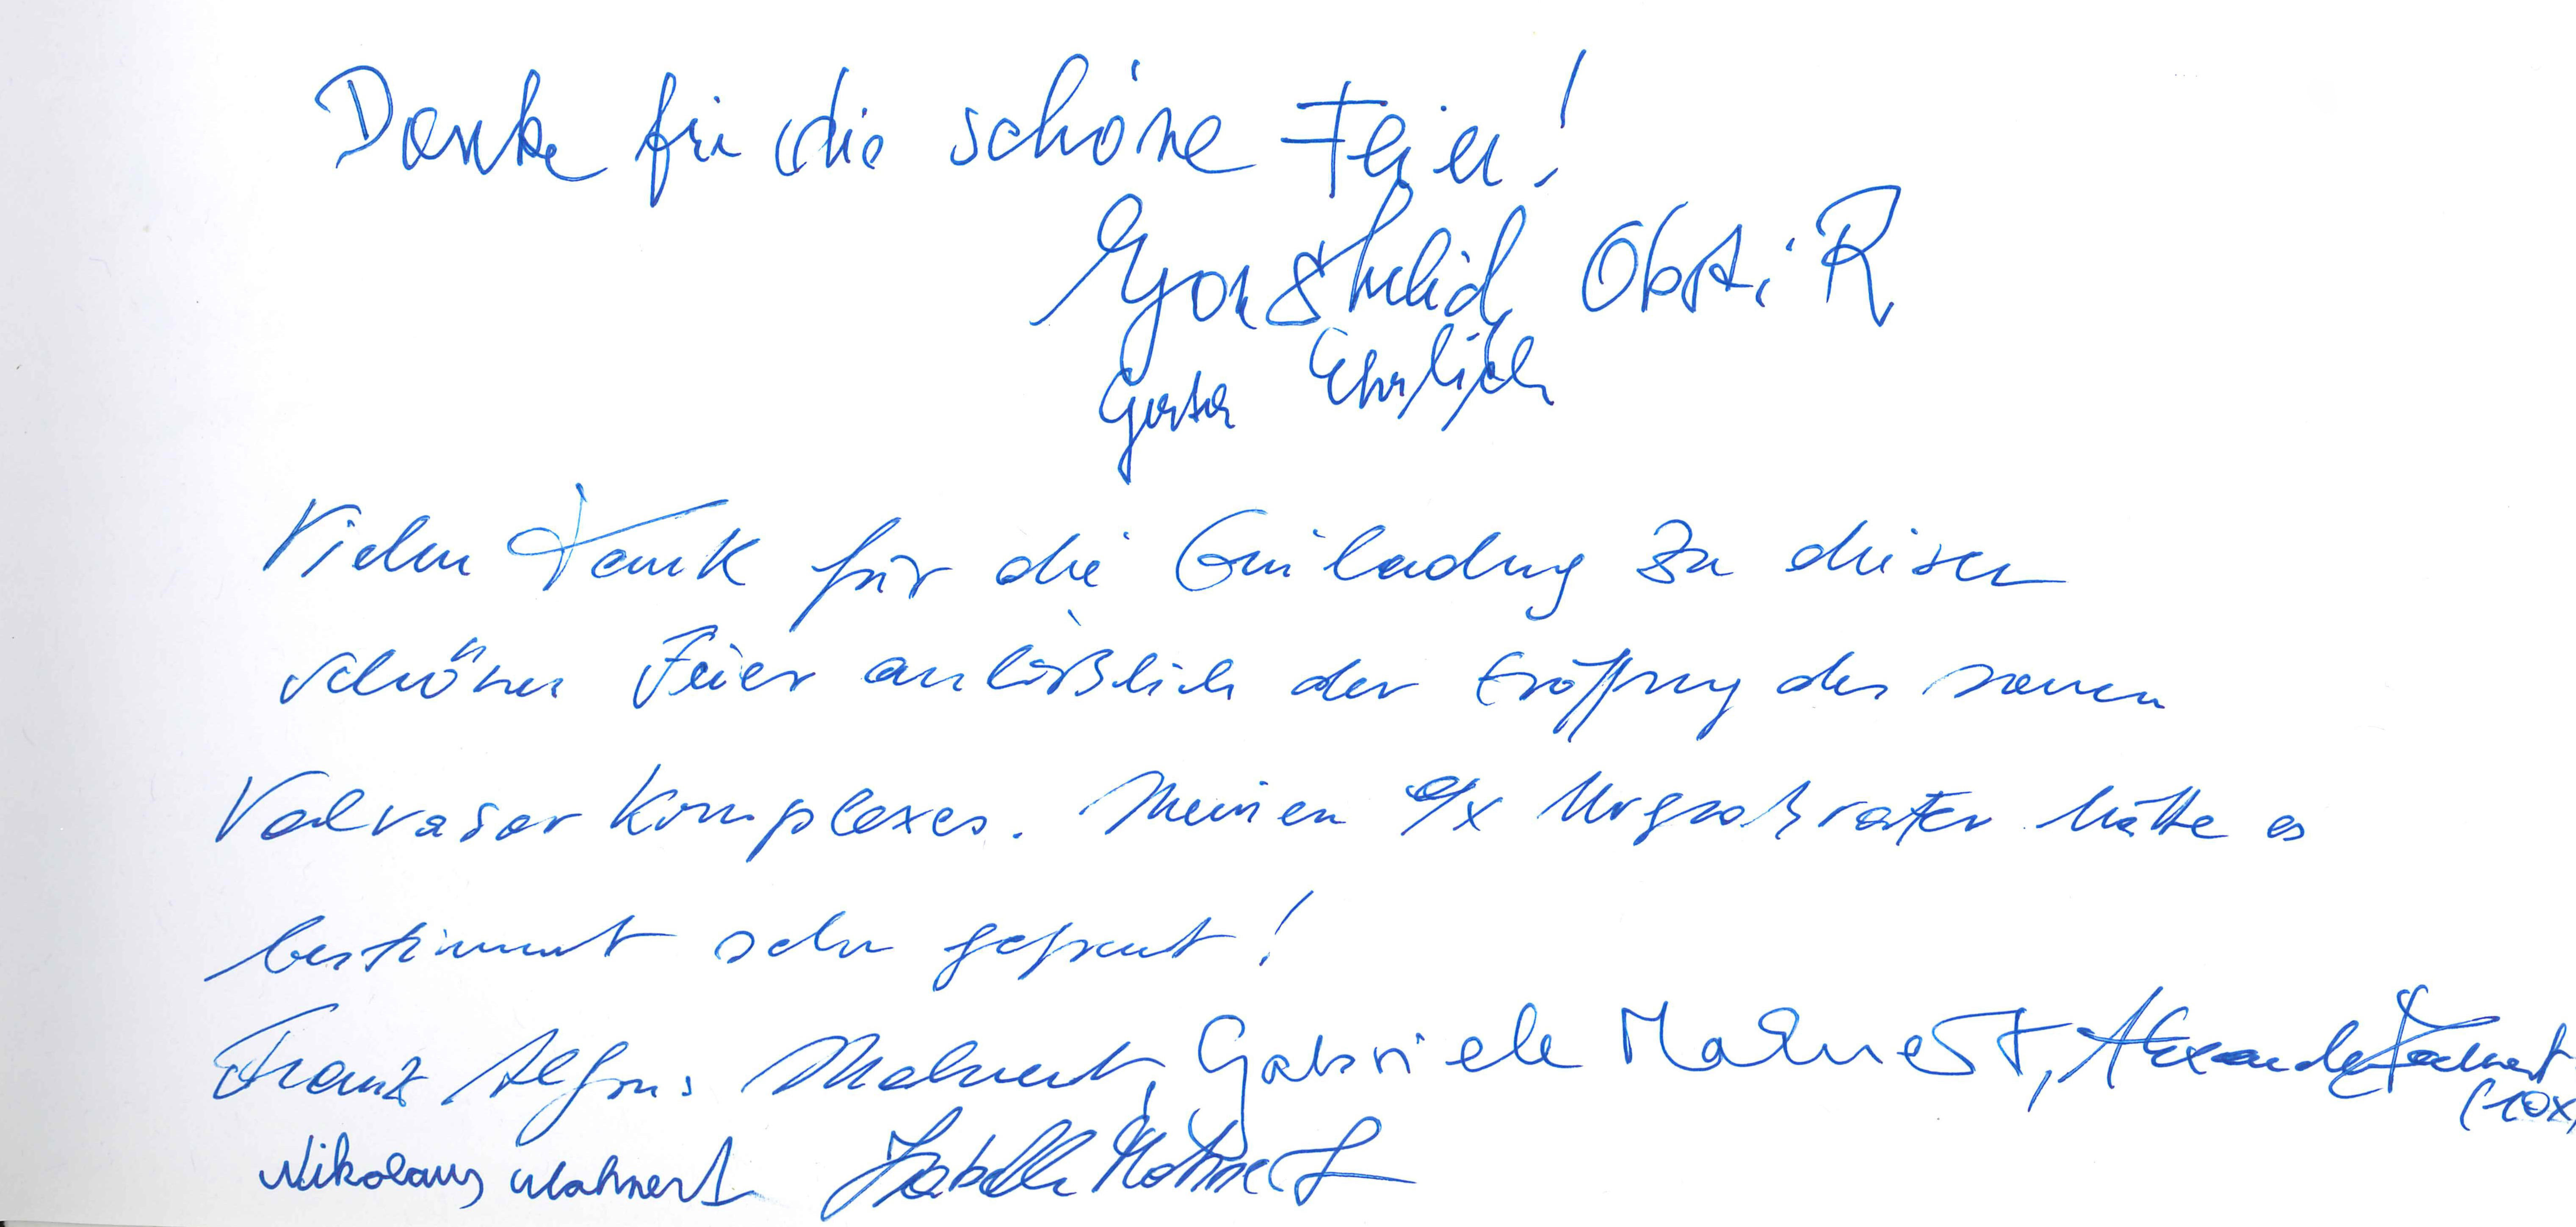 Danke für die schöne Feier!
Egon Ehrlich Obst i R
Gerta Ehrlich
Vielen Dank für die Einladung zu dieser
schönen Feier anläßlich der Eröffnung des neuen
Valvasor Komplexes. Meinen 9x Urgroßvater hätte es
bestimmt sehr gefreut!
Frank Alfons Mahnert, Gabriele Mahnert, Alexander Mahnert
(10x)
Nikolaus Mahnert Isabella Mahnert